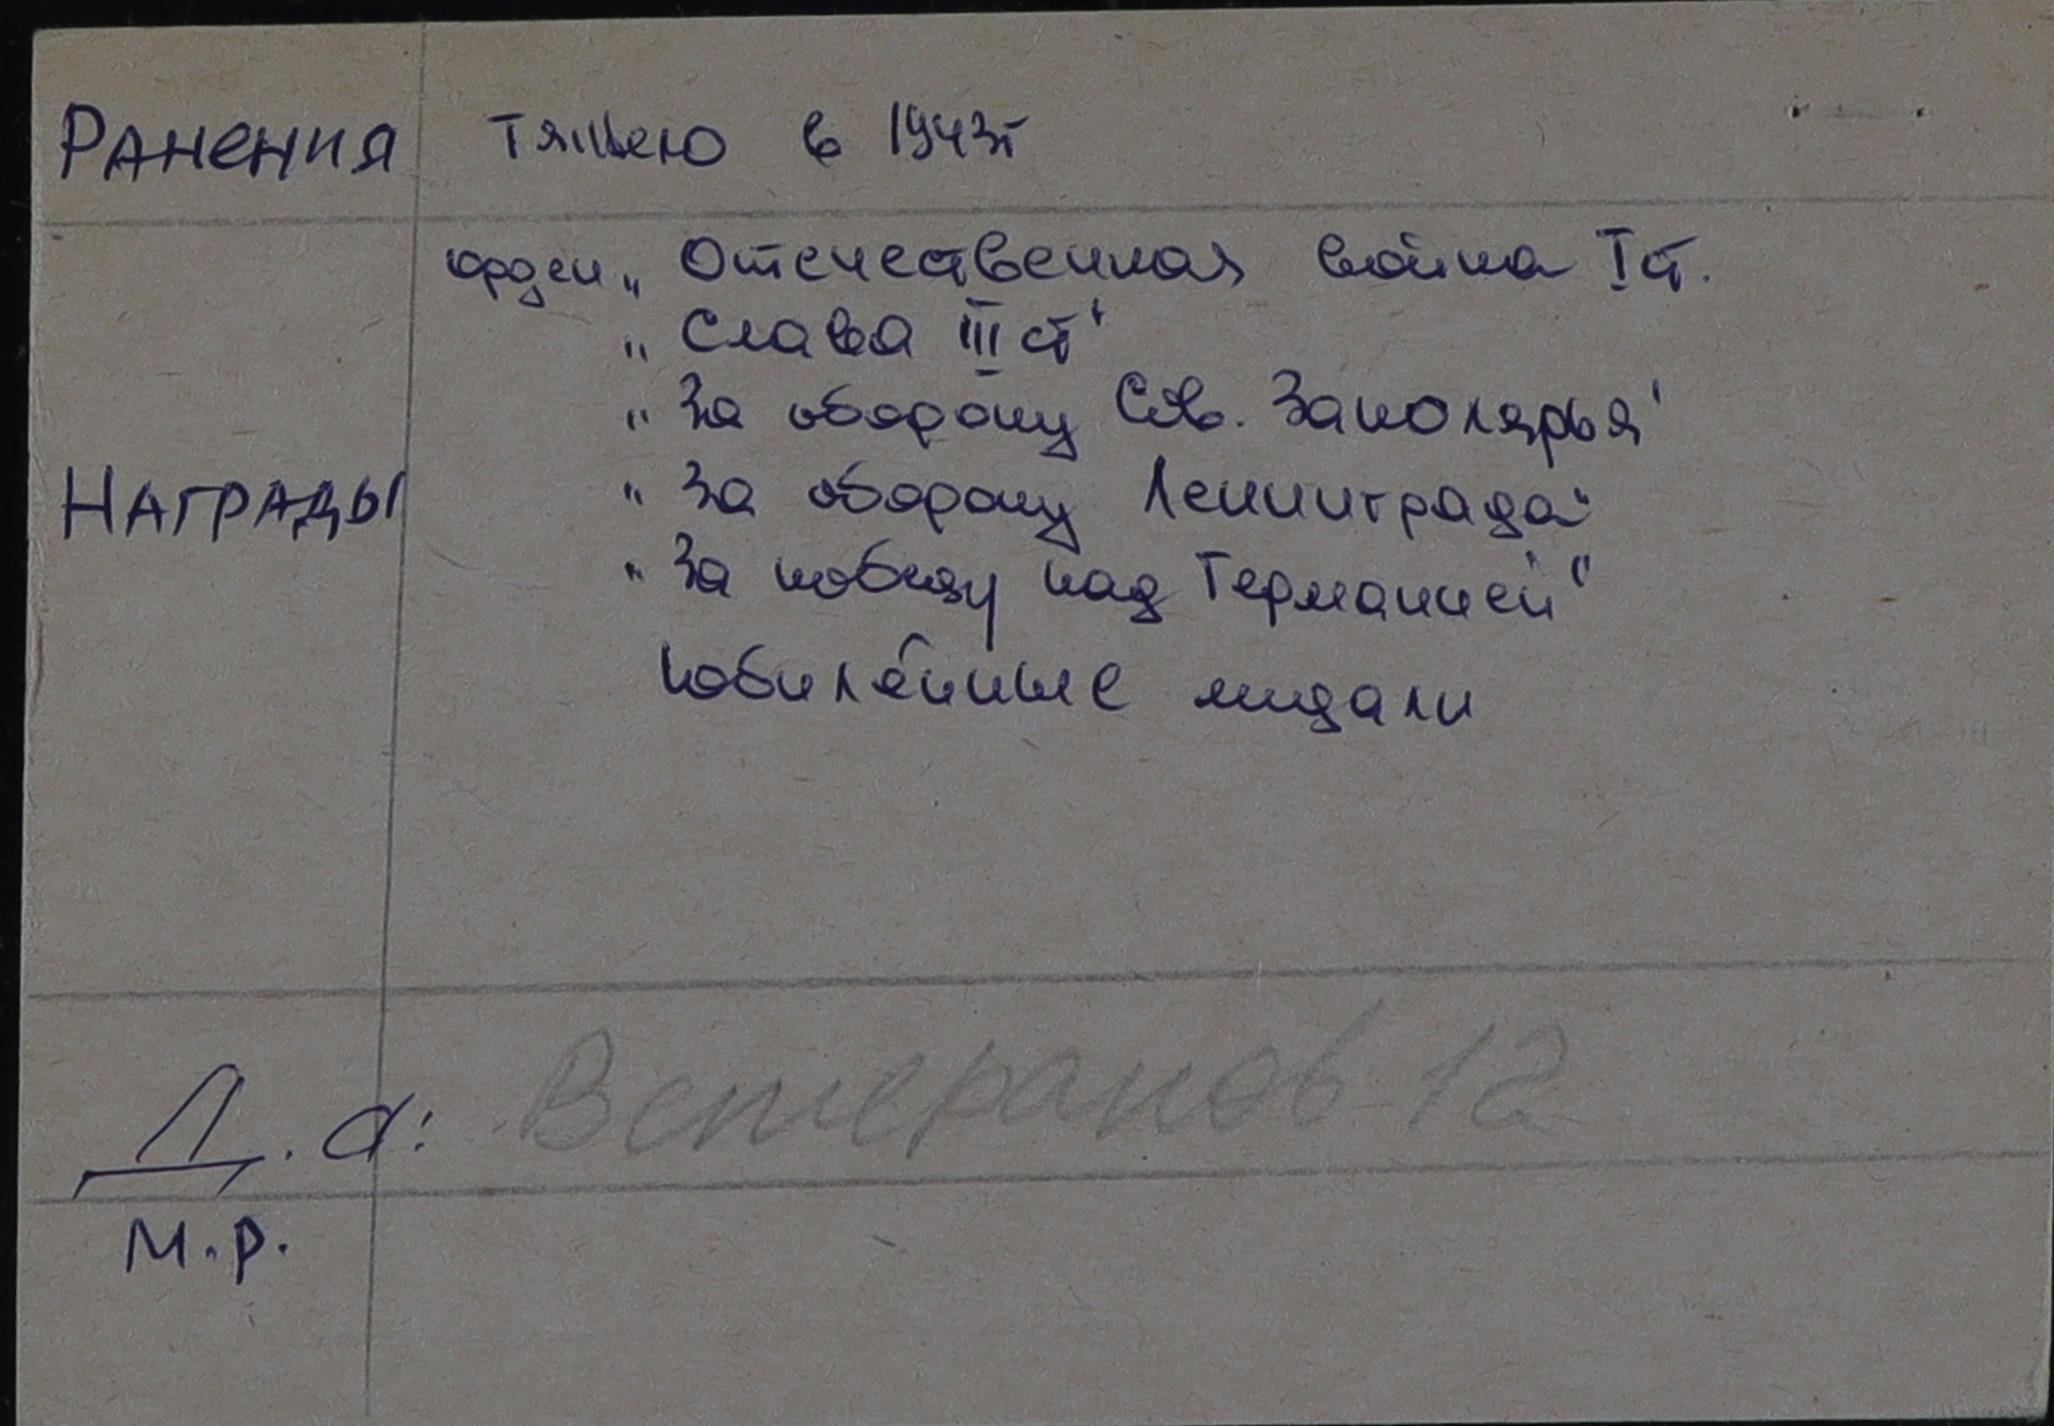 Ранения тяжело в 1943г
орден „ Отечественная война I ст.
„ Слава III ст"
„ За оборону Сов. Заполярья"
Награды „ За оборону Ленинграда"
„ За победу над Германией"
Юбилейные медали
Д. а: Ветеранов 12
м.р.